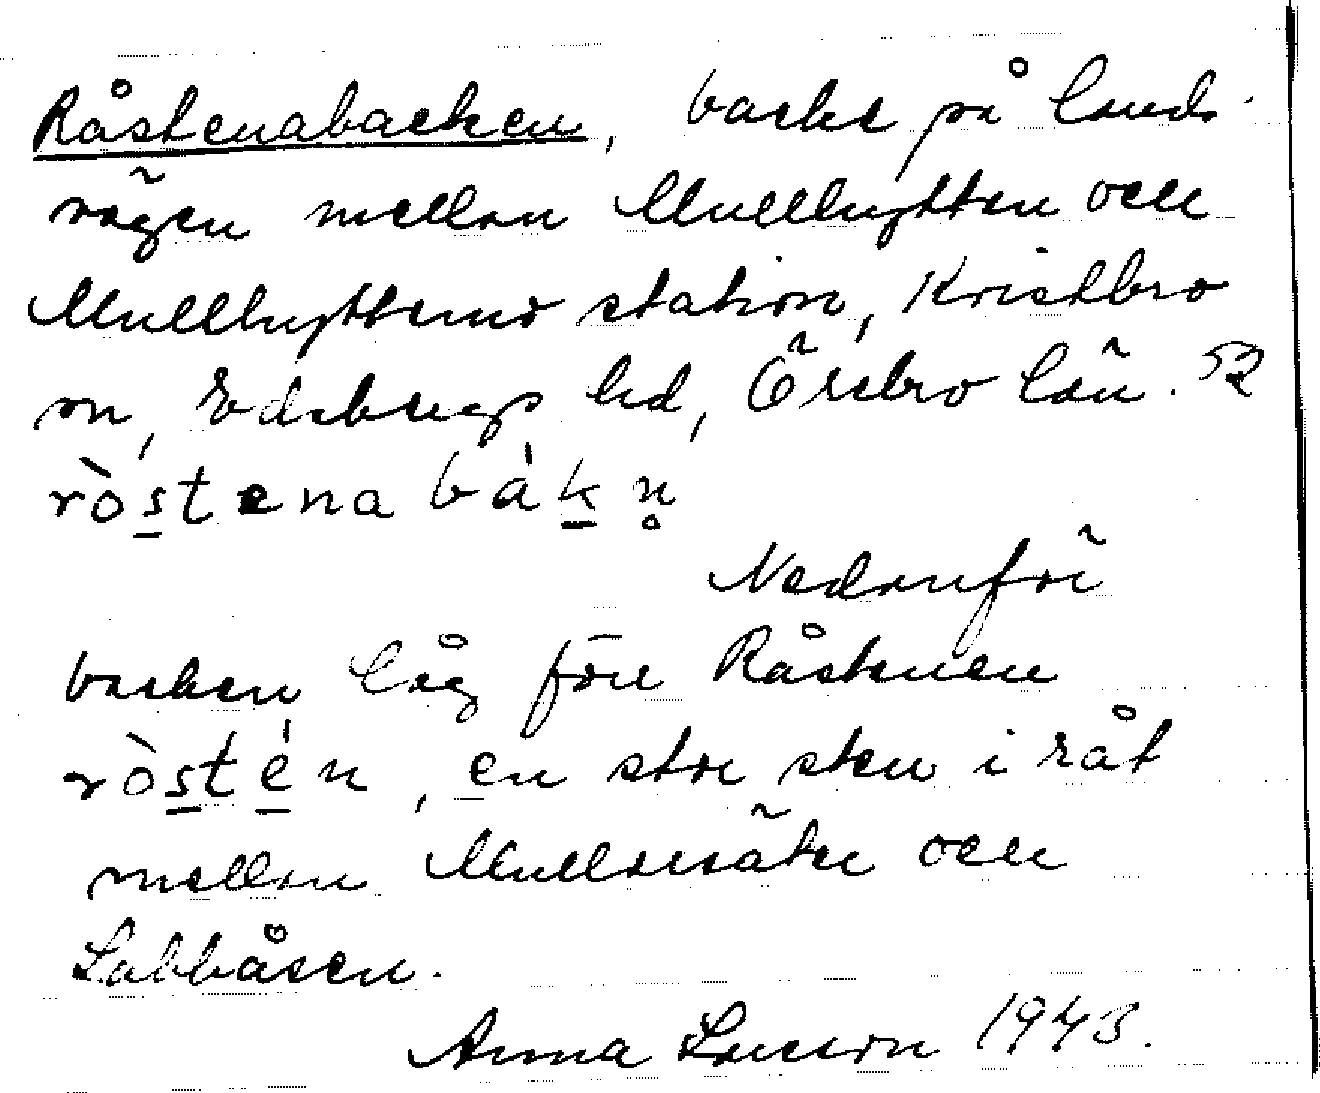 Råstenabacken, backe på lands-
vägen mellan Mullhyttan och
Mullhyttemo station, Kvistbro
sn, Edsbergs hd, Örebro län. 52
ròstenabàkn̥
Nedanför
backen låg förr Råstenen
ròstén, en stor sten i råt
mellan och
Labbåsen.
Anna Larson 1943.